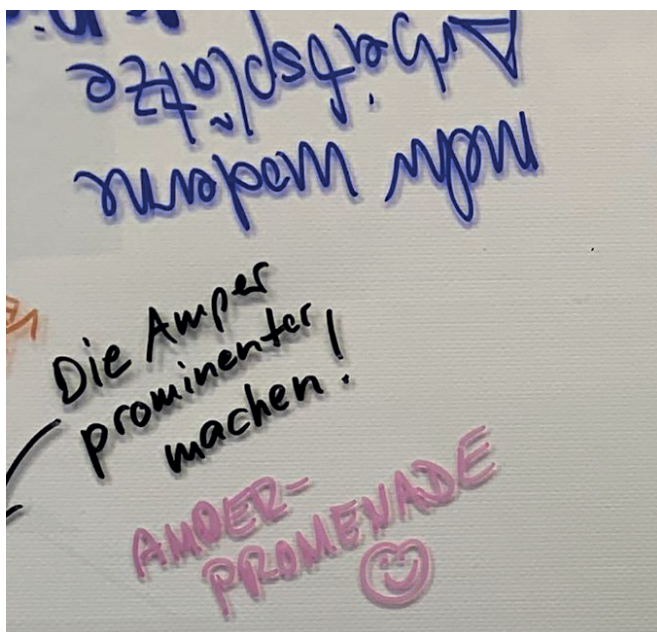 mehr moderne
Arbeitsplätze
Die Amper
prominenter
machen!
AMPER-
PROMENADE